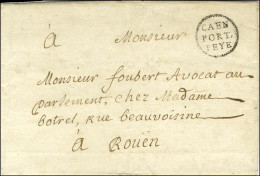 à Monsieur
CAEN
PORT.
PEYE
Monsieur foubert Avocat au
parlement, chez Madame
botrel, rue beauvoisine
à Rouën